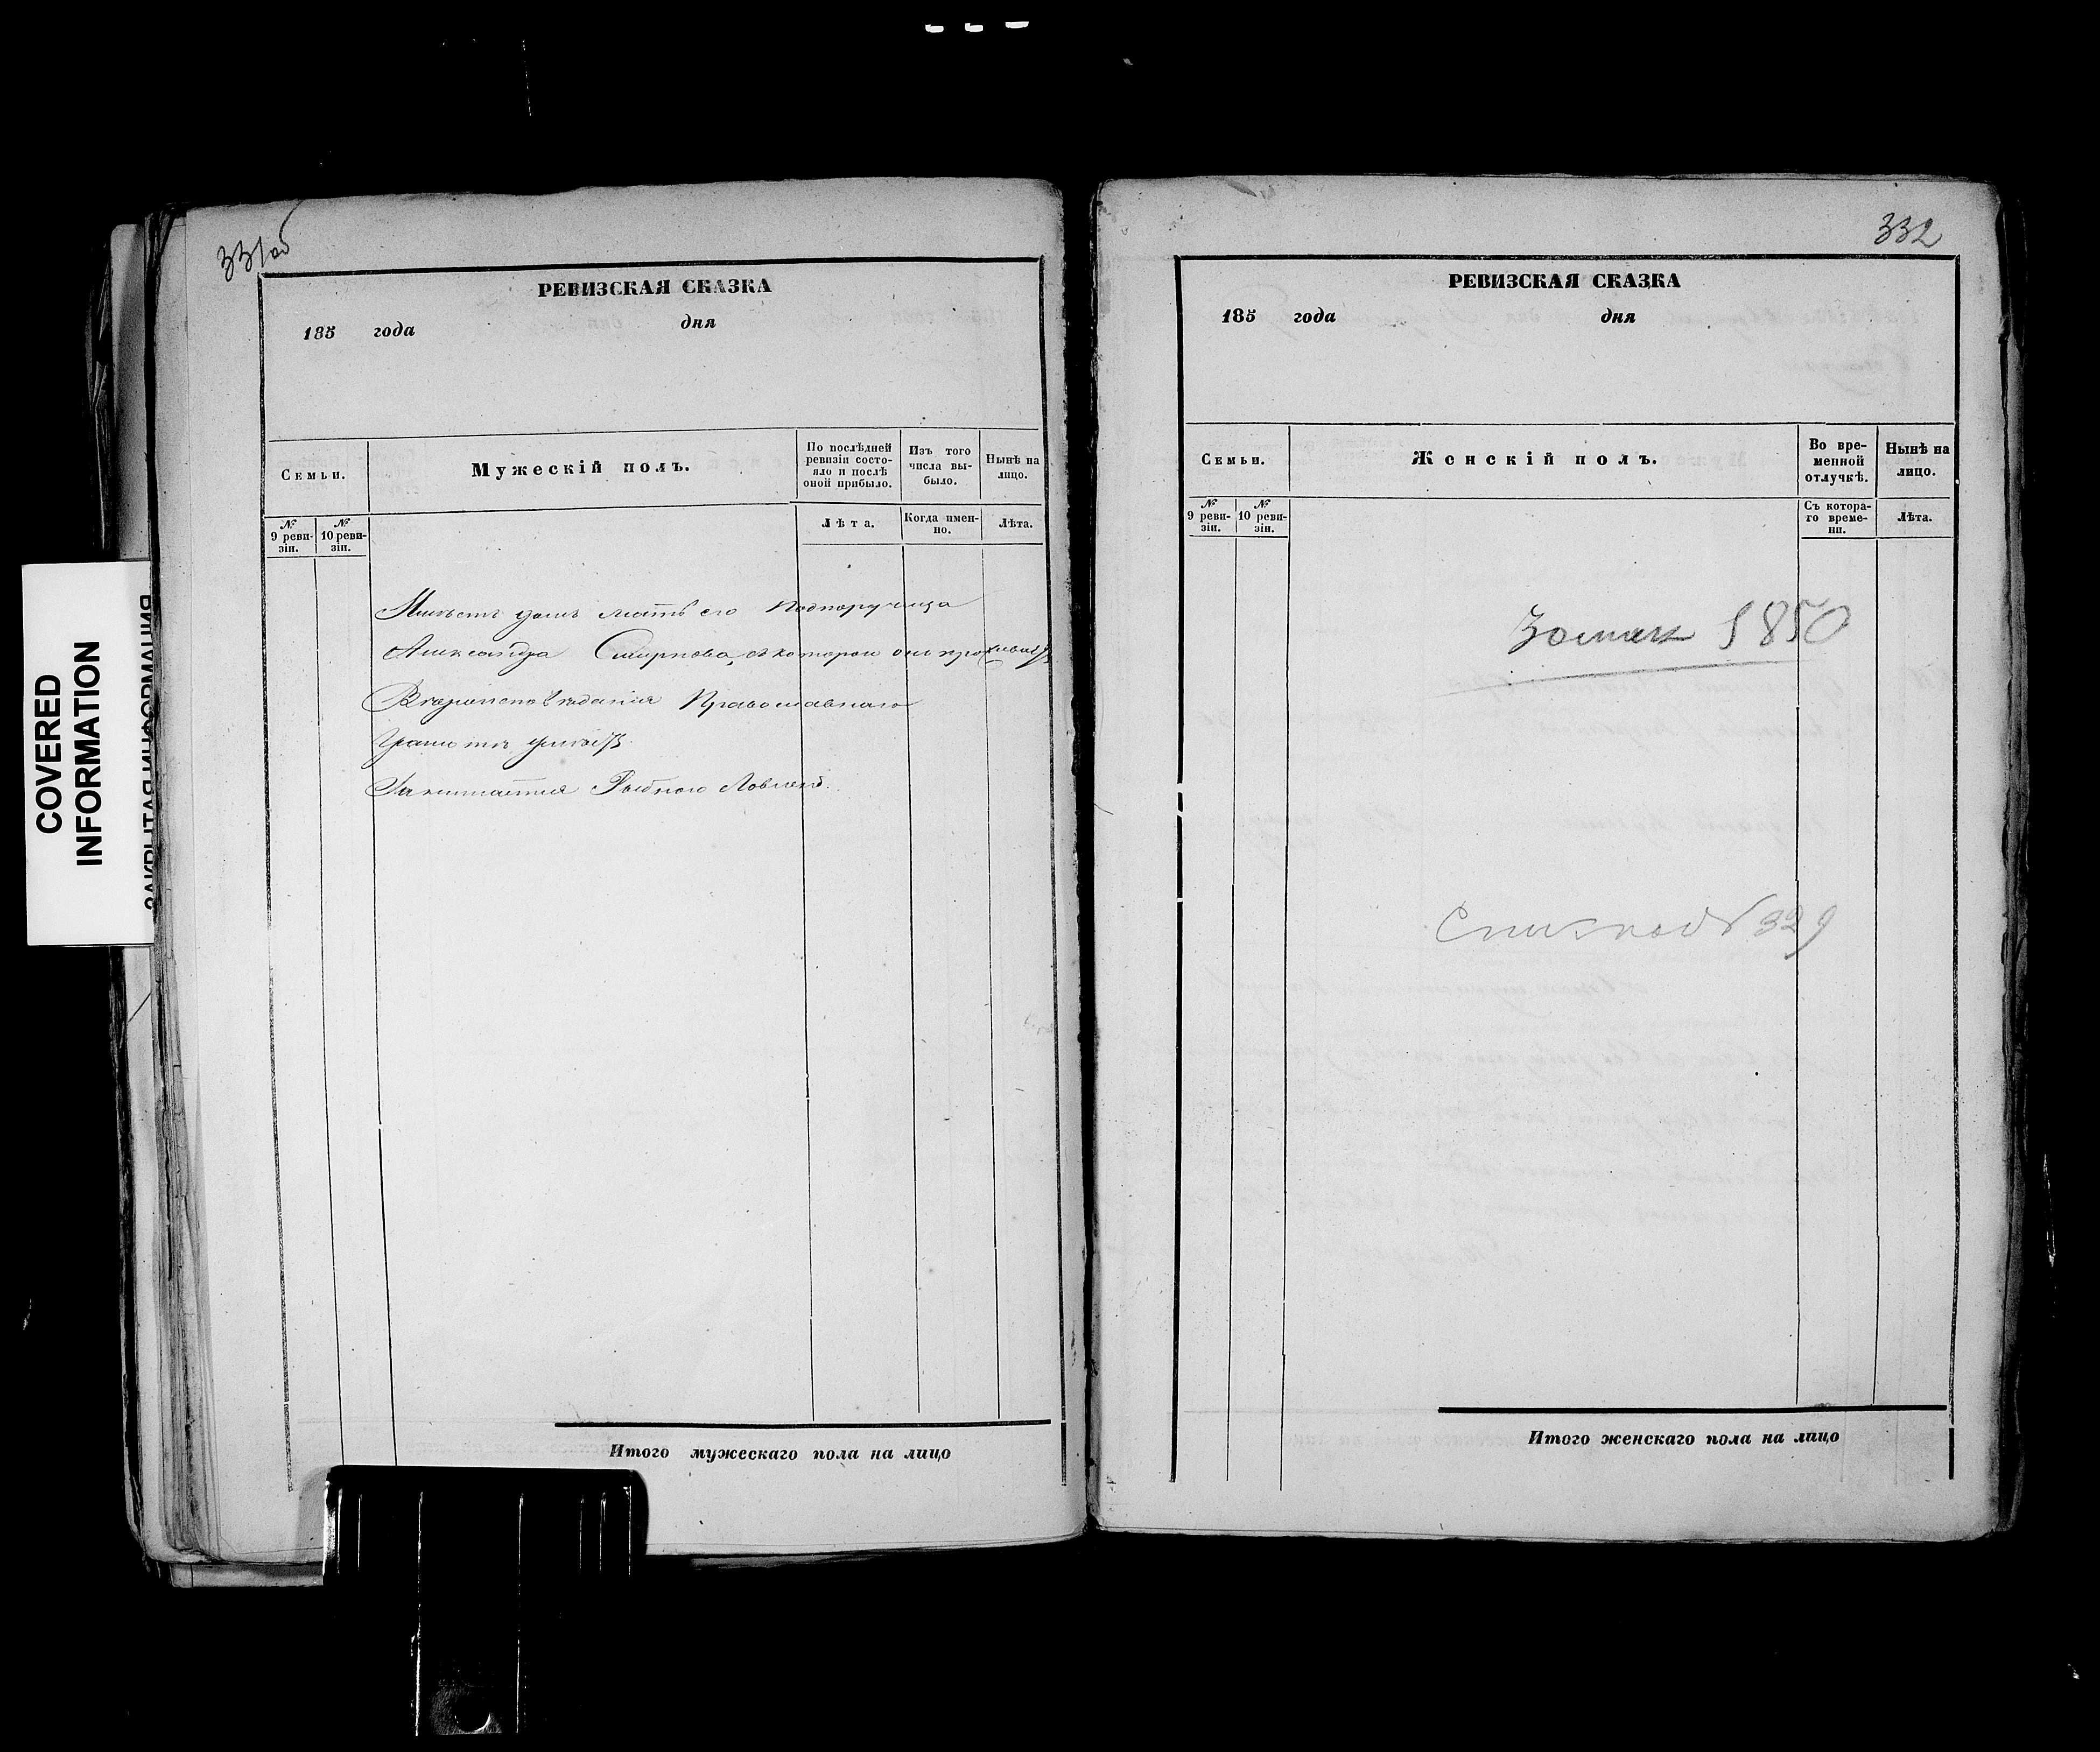 331об
РЕВИЗСКАЯ СКАЗКА
185 года дня
Семьи.
Мужескій полъ.
По послѣдней ревизіи состояло и послѣ оной прибыло.
Изъ того числа выбыло.
Нынѣ на лицо.
№ 9 ревизіи.
№ 10 ревизіи.
Лѣта.
Когда именно.
Лѣта.
мать его
Александра Смирнова, съ которой онъ проживаетъ
Вѣроисповѣданія Православнаго
Грамотѣ умѣетъ
Занимается Рыбною Ловлею.
Итого мужескаго пола на лицо
332
РЕВИЗСКАЯ СКАЗКА
185 года дня
Семьи.
Женскій полъ.
Во временной отлучкѣ.
Нынѣ на лицо.
№ 9 ревизіи.
№ 10 ревизіи.
Съ котораго времени.
Лѣта.
1850
329
Итого женскаго пола на лицо
COVERED
INFORMATION
ЗАКРЫТАЯ ИНФОРМАЦИЯ